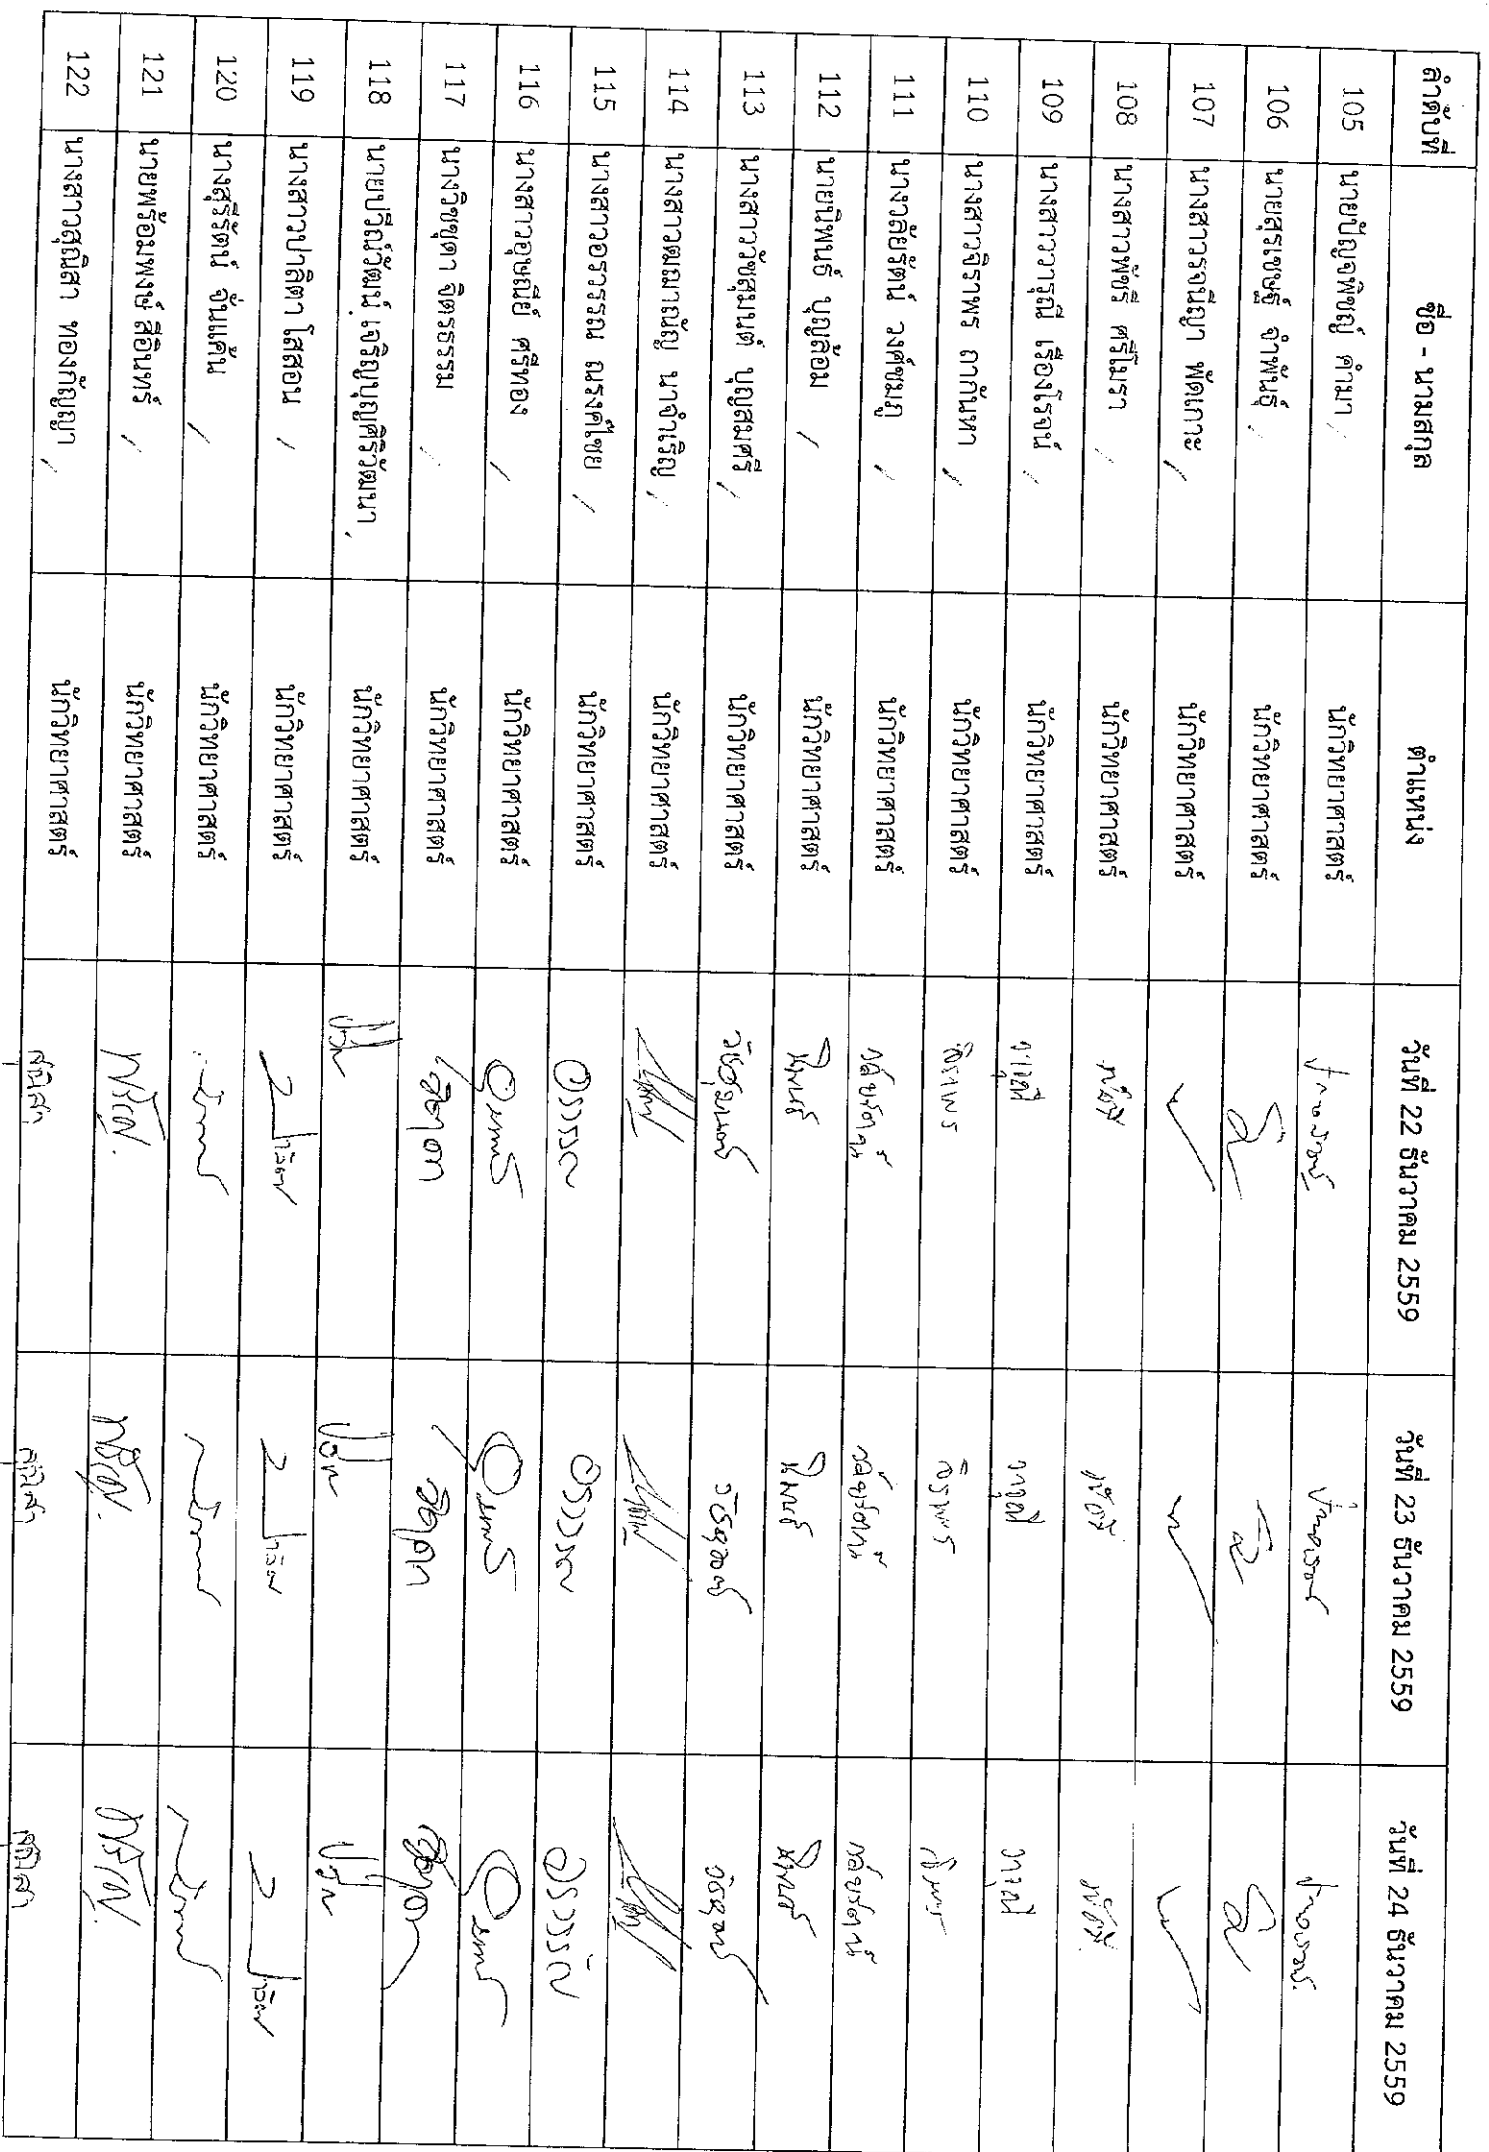 ลำดับที่ ชื่อ - นามสกุล ตำแหน่ง วันที่ 22 ธันวาคม 2559 วันที่ 23 ธันวาคม 2559 วันที่ 24 ธันวาคม 2559
105 นายปัญจพิชญ์ คำมา นักวิทยาศาสตร์
106 นายสุรเชษฐ์ จำพันธุ์ นักวิทยาศาสตร์
107 นางสาวรจนีญา พัดเกาะ นักวิทยาศาสตร์
108 นางสาวพัชรี ศรีโมรา นักวิทยาศาสตร์ พัชรี พัชรี พัชรี
109 นางสาววารุณี เรืองโรจน์ นักวิทยาศาสตร์ วารุณี วารุณี วารุณี
110 นางสาวจิราพร ถากันหา นักวิทยาศาสตร์ จิราพร จิราพร
111 นางวลัยรัตน์ วงศ์ชมภู นักวิทยาศาสตร์ วลัยรัตน์ วลัยรัตน์ วลัยรัตน์
112 นายนิพนธ์ บุญล้อม นักวิทยาศาสตร์ นิพนธ์ นิพนธ์ นิพนธ์
113 นางสาววัชสุมนต์ บุญสมศรี นักวิทยาศาสตร์
114 นางสาวฒมาณัญ นาจำเริญ นักวิทยาศาสตร์
115 นางสาวอรวรรณ ณรงค์ไชย นักวิทยาศาสตร์ อรวรรณ อรวรรณ อรวรรณ
116 นางสาวอุษณีย์ ศรีทอง นักวิทยาศาสตร์
117 นางวิชชุดา จิตรธรรม นักวิทยาศาสตร์
118 นายปวีณ์วัฒน์ เจริญบุญศิริวัฒนา นักวิทยาศาสตร์
119 นางสาวปาลิตา โสสอน นักวิทยาศาสตร์
120 นางสุรีรัตน์ จั่นแค้น นักวิทยาศาสตร์
121 นายพร้อมพงษ์ สีอินทร์ นักวิทยาศาสตร์
122 นางสาวสุณิสา ทองกัญญา นักวิทยาศาสตร์ สุณิสา สุณิสา สุณิสา